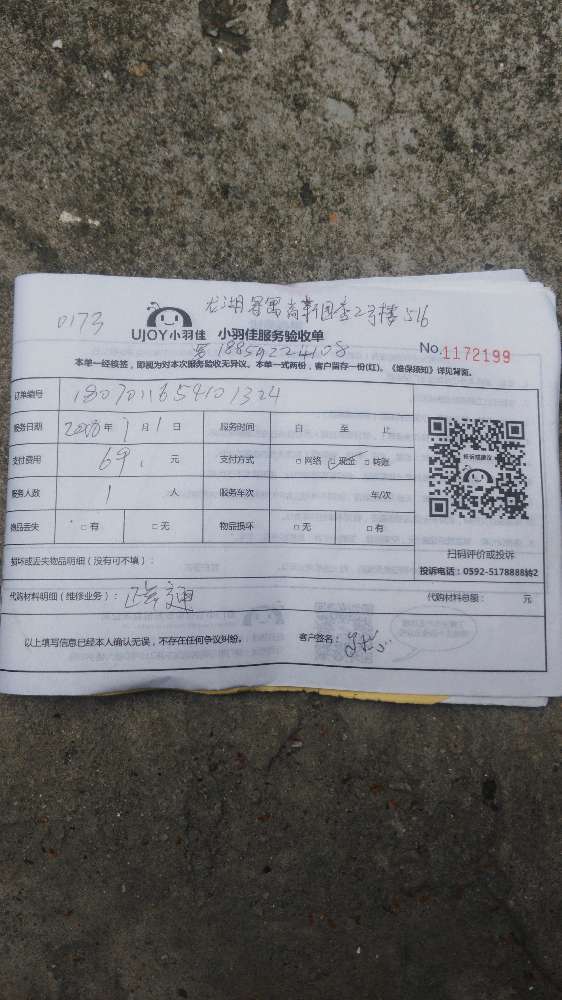 0173
UJOY小羽佳 小羽佳服务验收单
No.1172199
本单一经核签，即视为对本次服务验收无异议。本单一式两份，客户留存一份(红)。《维保须知》详见背面。
订单编号
服务日期 年 7 月 1 日 服务时间 自 至 止
支付费用 69 元 支付方式 □网络 ☑现金 □转账
服务人数 1 人 服务车次 车/次
物品丢失 □有 □无 物品损坏 □无 □有
损坏或丢失物品明细（没有可不填）：
代购材料明细（维修业务）： 代购材料总额： 元
以上填写信息已经本人确认无误，不存在任何争议纠纷。 客户签名：
扫码评价或投诉
投诉电话：0592-5178888转2